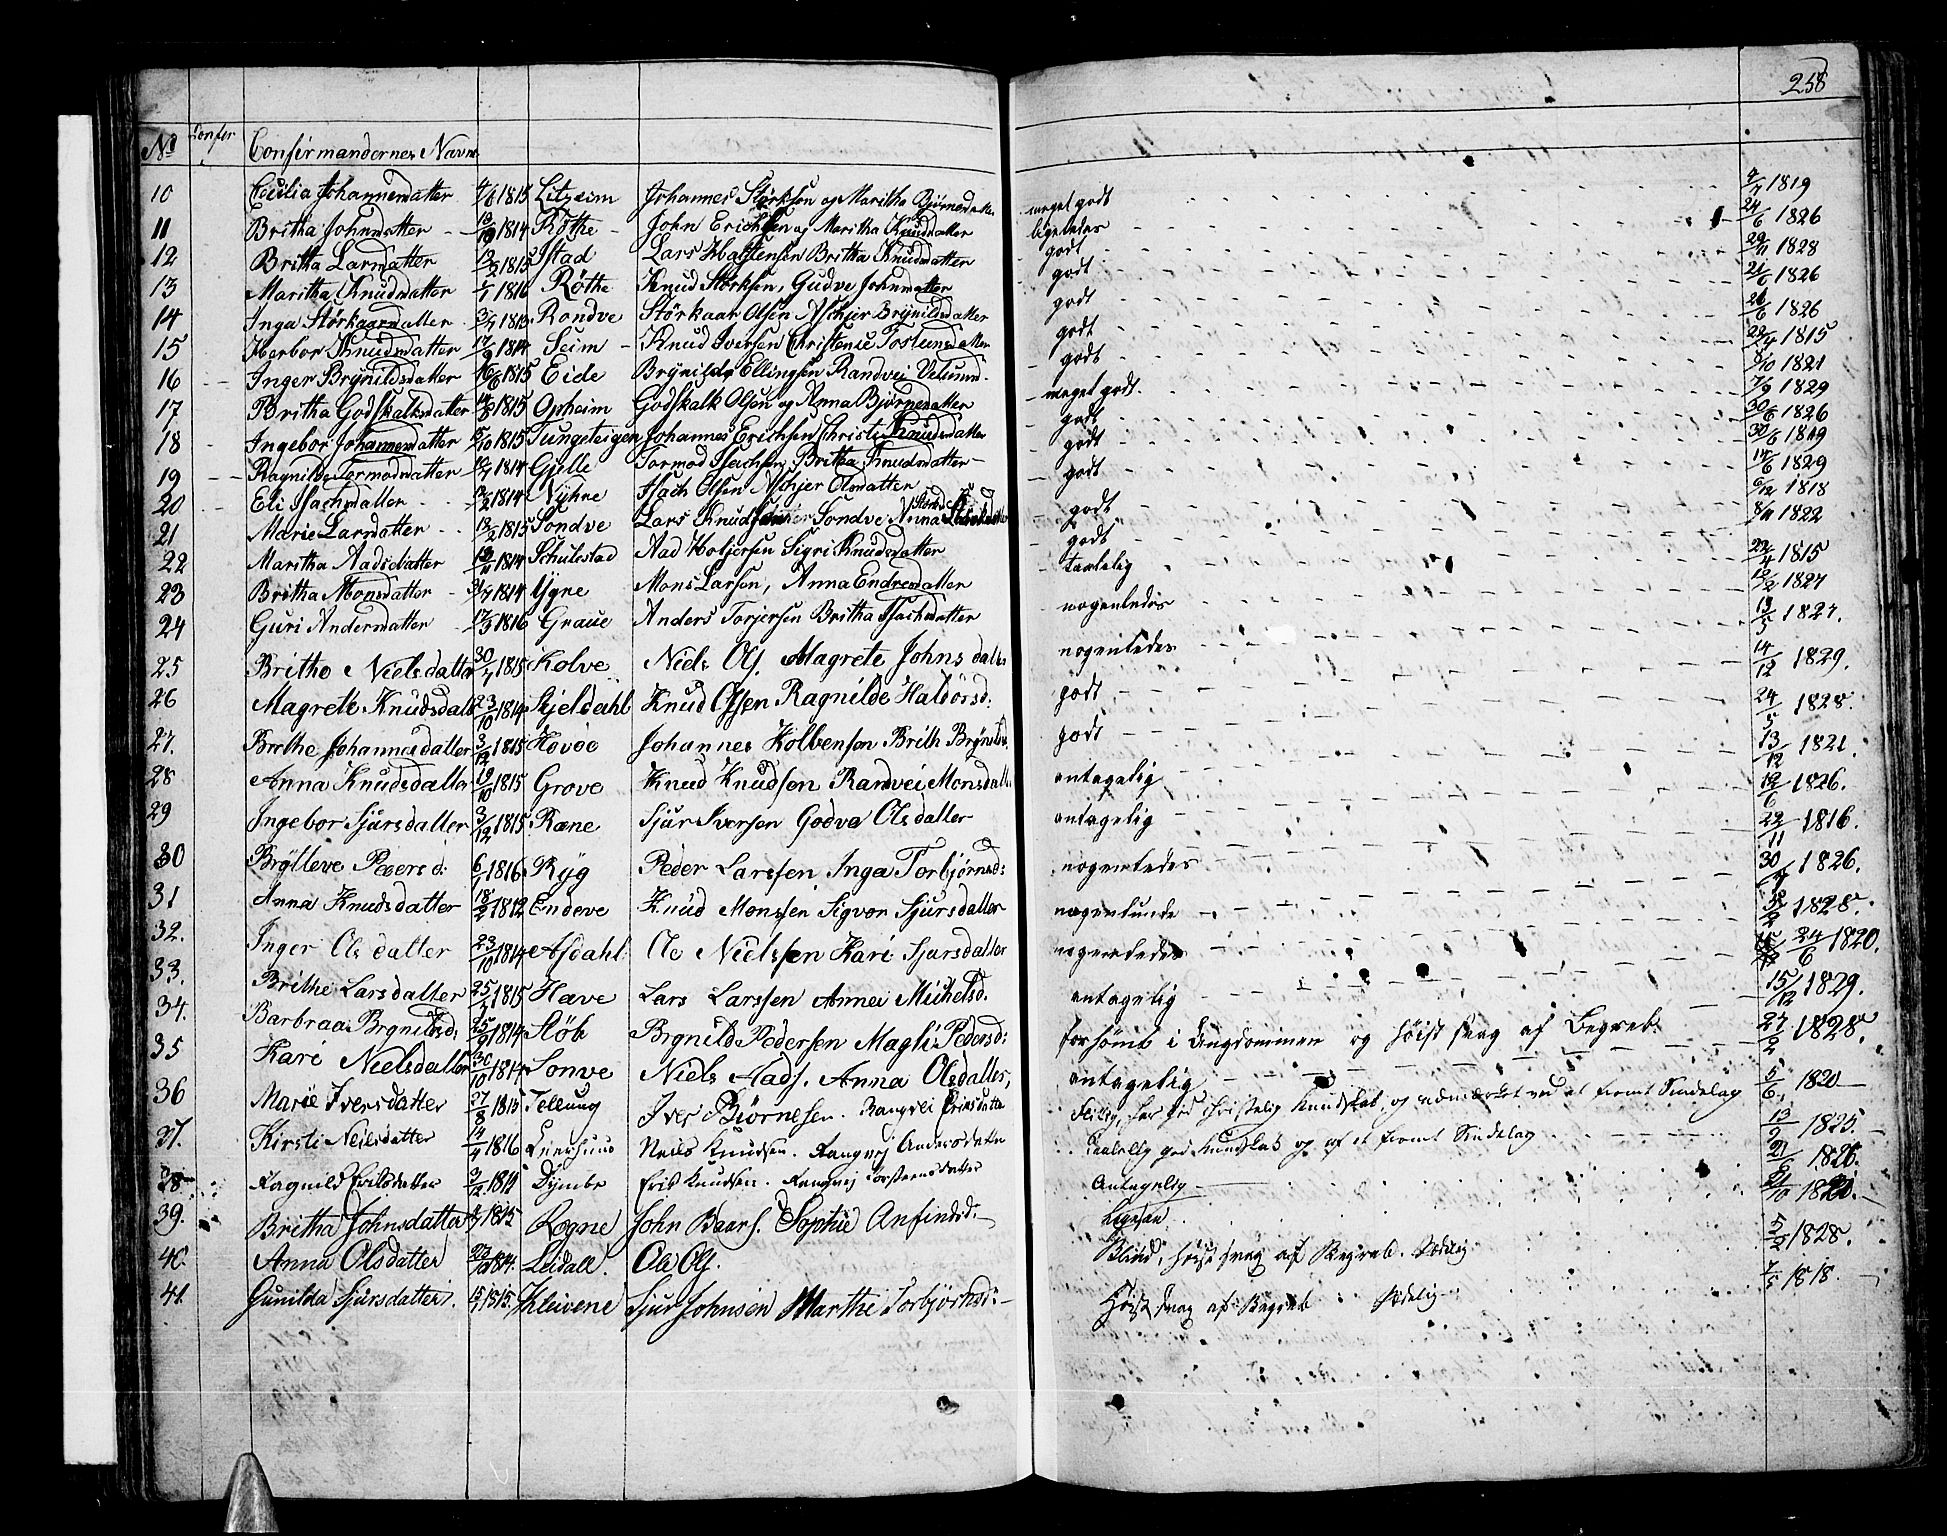 258
No Confir Confirmandernes Navne
10 Cicilia Johannesdatter 4/6 1815 Litzeim Johannes Störksen og Maritha Bjørnsdatter meget godt 4/7 1819
11 Britha Johnsdatter 1814 Röthe John Erichsen og Maritha Knudsdatter ligeledes 24/6 1826
12 Britha Larsdatter 1815 Istad Lars Halstensen Britha Knudsdatter godt 1828
13 Maritha Knudsdatter 1/7 1816 Röthe Knud Störksen, Gudve Johnsdatter godt 21/6 1826
14 Inga Störkaarsdatter 3/7 1813 Rondve Störkaar Olsen Aschjer Brynildsdatter godt 1826
15 Herbor Knudsdatter 17/9 1814 Seim Knud Iversen Christense Tostensdatter godt 1815
16 Inger Brynildsdatter 16/6 1815 Eide Brynild Ellingsen Randvei godt 8/10 1821
17 Britha Godskalksdatter 1815 Opheim Godskalk Olsen og Anna Bjørnsdatter meget godt. 7/9 1829
18 Ingebor Johannesdatter 1815 Tungeteigen Johannes Erichsen Christi Knudsdatter godt 30/6 1826
19 Ragnilde Tormodsdatter 1814 Gjelle Tormod Isachsen Britha Knudsdatter godt 30/6 1819
20 Eli Isachsdatter 1814 Nyhre Isach Olsen Aschjer Olsdatter godt 14/6 1829
21 Marie Larsdatter 13/2 1815 Söndve Lars Knudsen Sondve Anna godt 6/12 1818
22 Maritha Aadsdatter 1814 Schulestad Aad Holjersen Sigri Knudsdatter godt 8/11 1822
23 Britha Monsdatter 1814 Ygre Mons Larsen, Anna Endresdatter taalelig 22/4 1815
24 Guri Andersdatter 17/3 1816 Graue Anders Torjersen Britha Isachsdatter nogenledes 12/2 1827
25 Brithe Nielsdatter 30/4 1815 Kolve Niels Ols. Magrete Johnsdatter nogenledes 13/5 1827.
26 Magrete Knudsdatt 23/10 1814 Gjeldahl Knud Olssen Ragnilde Haldorsd: godt 14/12 1829.
27. Brithe Johannesdatter 3/12 1815 Hovoe Johannes Kolbenson Brith Brynilsd. godt 24/5 1828.
28 Anna Knudsdatter 19/10 1815 Grove Knud Knudson Randvei Monsdatt. antagelig 13/12 1821.
29 Ingebor Sjursdatter 3/12 1815 Ræne Sjur Iversen Godve Olsdatter antagelig 12/6 1826.
30 Brytteve Peders d: 6/1 1816 Ryg Peder Larssen Inga Torbjørnsd: nogenledes 22/11 1816.
31 Anna Knudsdatter 18/2 1812 Endeve Knud Monssen Sigvor Sjursdatter nogenlunde 30 1826.
32. Inger Olsdatter 23/10 1814 Asdahl Ole Nielssen Kari Sjursdatter nogenledes 1828.
33. Brithe Larsdatter 25/1 1815 Have Lars Larssen Annei Michelsd. antagelig 24/6 1820.
34. Barbraa Brynildsd: 25/9 1814 Støb Brynild Pedersen Magli Pedersd: forsömt i Ungdommen og høist svag af Begreb. 15/12 1829.
35 Kari Nielsdatter 30/10 1814 Sonve Niels Aads. Anna Olsdatter, antagelig 27/2 1828.
36 Marie Iversdatter 27/8 1815 Tellung Iver Björnesen. Rangvei Eriksdatter Flitig, har god christelig Kundskab, og udmærket ved et fromt Sindelag 5/6 1820
37. Kirsti Neilsdatter 14/4 1816 Neils Knudsen. Rangvej Andersdatter Taalelig god Kundskab og af et fromt Sindelag 13/9 1825.
38 Ragnild Eriksdatter 9/12 1814 Dymbe Erik Knudsen. Rangvej Torstensdatter Antagelig 21/6 1826.
39. Britha Johnsdatter 1815 Rogne John Baars. Sophie Anfindsd. Ligesaa 21/10
40. Anna Olsdatter 1814. Leidall. Ole Ols. Blind, høist svag af Begreb. Sædelig 5/2 1828.
41. Gunilda Sjursdatter. 1815. Kleivene Sjur Johnsen Marthe Torbjörnsd: Høist svag af Begreb Sædelig 7/5 1818.